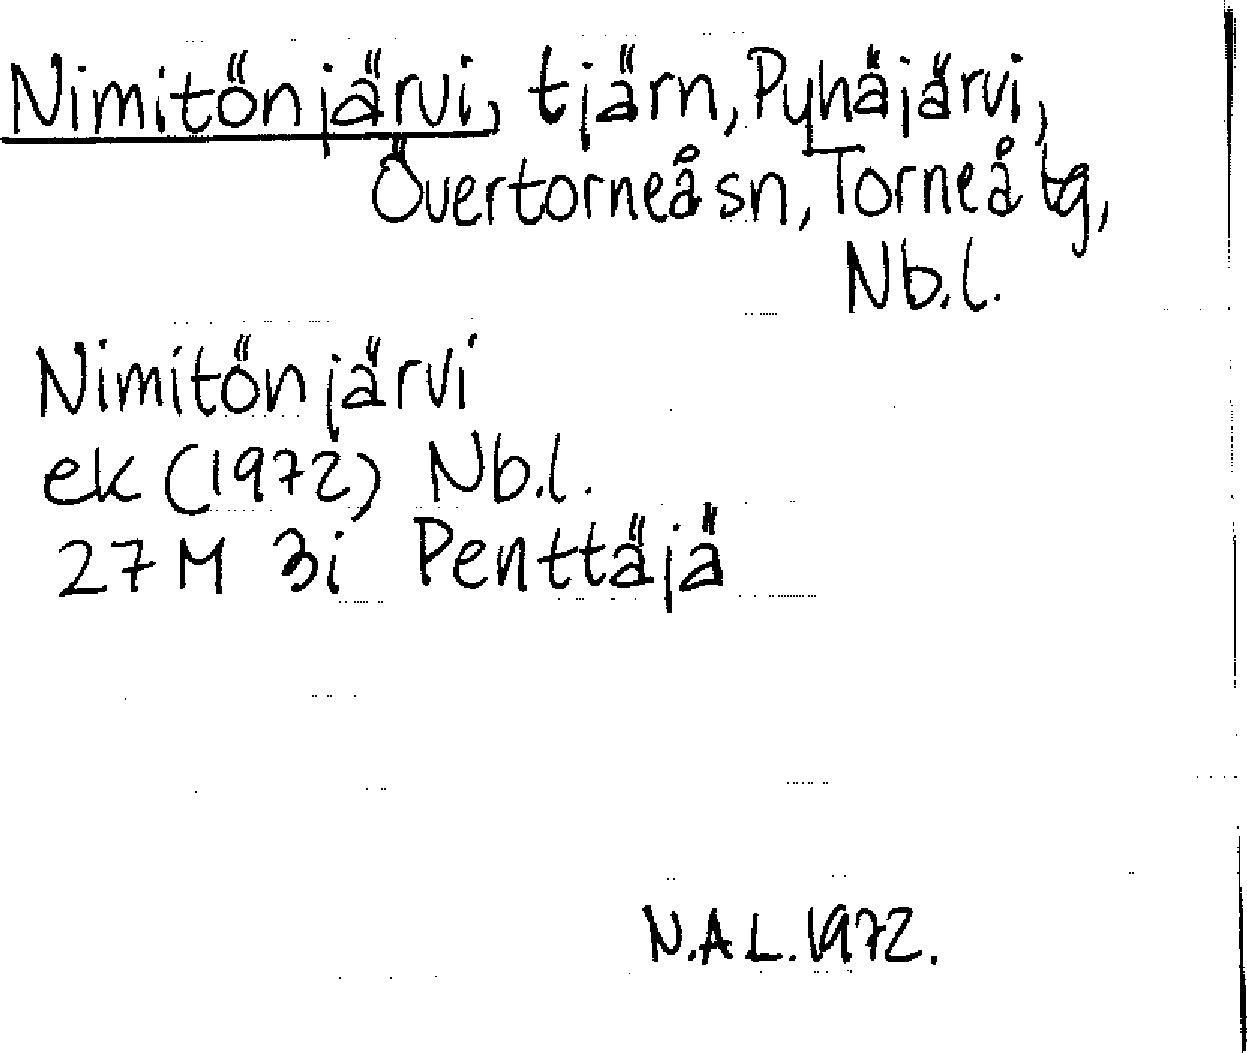 Nimitönjärvi, tjärn, Pyhäjärvi,
Övertorneå sn, Torneå tg,
Nb.l.
Nimitönjärvi
ek (1972) Nb.l.
27M 3i Penttäjä
N.A.L. 1972.